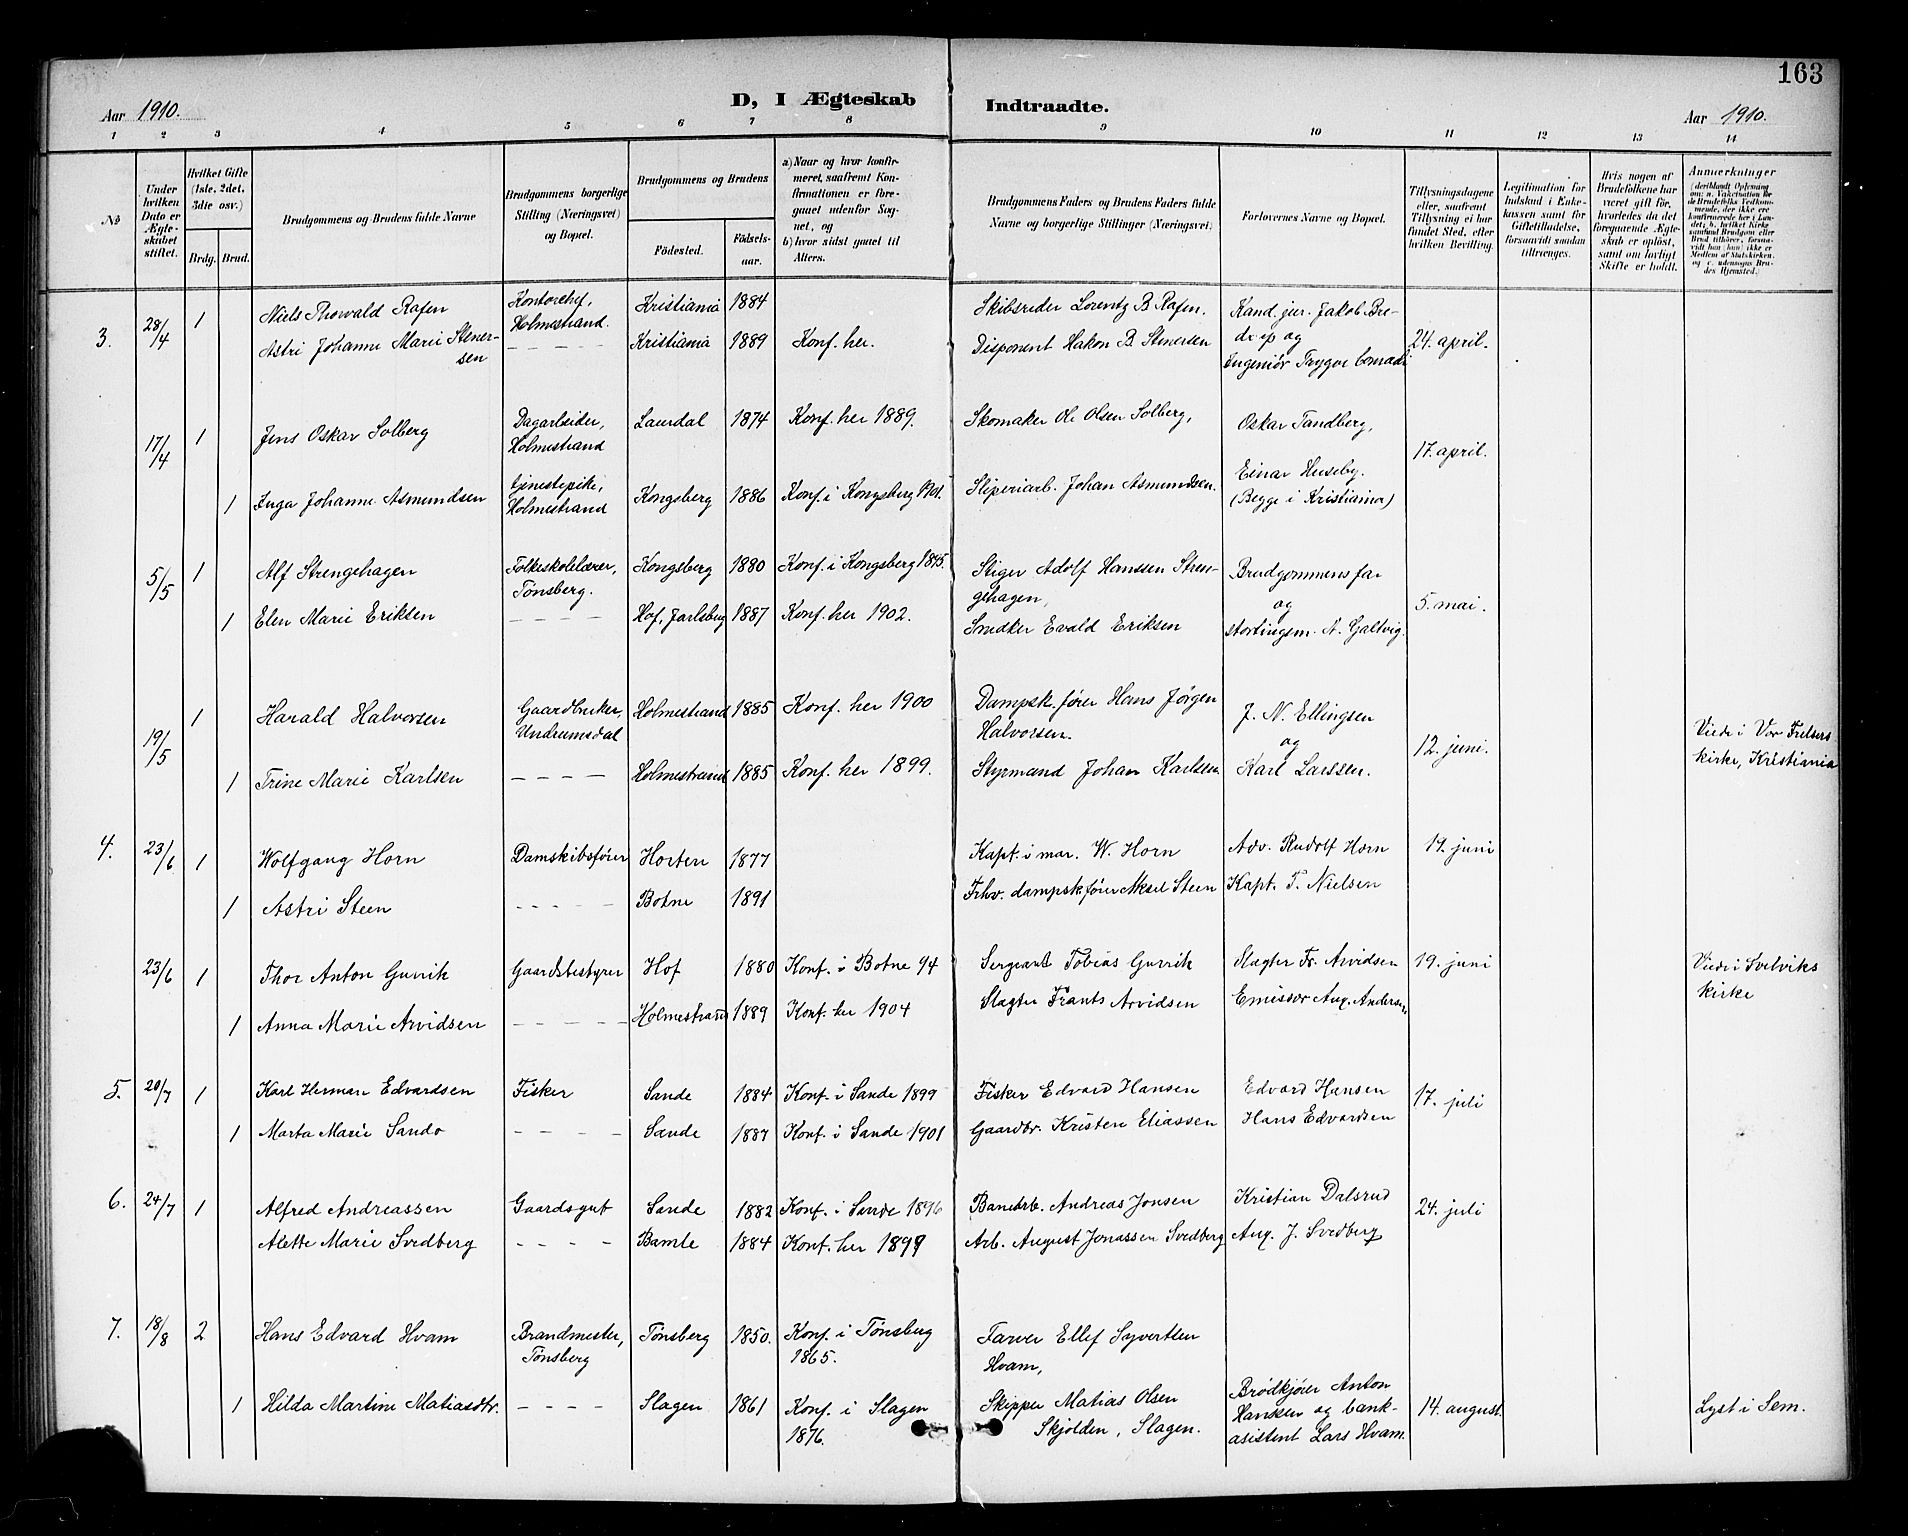 163
Aar 1910.
D, I Ægteskab Indtraadte.
Aar 1910.
1 2 3 4 5 6 7 8 9 10 11 12 13 14
No
Under hvilken Dato er Ægteskabet stiftet.
Hvilket Gifte (1ste, 2det, 3die osv.)
Brdg. Brud.
Brudgommens og Brudens fulde Navne
Brudgommens borgerlige Stilling (Næringsvei) og Bopæl.
Brudgommens og Brudens
Fødested. Fødsels-aar.
a) Naar og hvor konfirmeret, saafremt Konfirmationen er foregaaet udenfor Sognet, og
b) hvor sidst gaaet til Alters.
Brudgommens Faders og Brudens Faders fulde Navne og borgerlige Stillinger (Næringsvei).
Forlovernes Navne og Bopæl.
Tillysningsdagene eller, saafremt Tillysning ei har fundet Sted, efter hvilken Bevilling.
Legitimation for Indskud i Enkekassen samt for Giftetilladelse, forsaavidt saadan tiltrænges.
Hvis nogen af Brudefolkene har været gift før, hvorledes da det foregaaende Ægteskab er opløst, samt om lovligt Skifte er holdt.
Anmærkninger
(deriblandt Oplysning om: a. Vaccination for de Brudefolks Vedkommende, der ikke ere konfirmerede her i Landet; b. hvilket Kirkesamfund Brudgom eller Brud tilhører, forsaavidt han (hun) ikke er Medlem af Statskirken, og c. udensogns Brudes Hjemsted.)
3. 28/4 1 Niels Thorvald Rafen Kontorchef, Holmestrand. Kristiania 1884 Skibsreder Lorentz B. Rafen. Kand. jur. Jakob Bredrup og
Astri Johanne Marie Stenersen – – – – Kristiania 1889 Konf. her. Disponent Hakon B. Stenersen Ingeniør Trygve Conradi 24. april.
17/4 1 Jens Oskar Solberg Dagarbeider, Holmestrand Laurdal 1874 Konf. her 1889. Skomaker Ole Olsen Solberg, Oskar Tandberg, 17. april.
1 Inga Johanne Asmundsen tjenestepike, Holmestrand Kongsberg 1886 Konf. i Kongsberg 1901. Sliperiarb. Johan Asmundsen. Einar Huseby. (Begge i Kristiania)
5/5 1 Alf Strengehagen Folkeskolelærer, Tønsberg. Kongsberg 1880 Konf. i Kongsberg 1895. Stiger Adolf Hanssen Strengehagen, Brudgommens far og 5. mai.
1 Elen Marie Eriksen – – – – Hof, Jarlsberg 1887 Konf. her 1902. Snedker Evald Eriksen stortingsm. N. Galtvig.
19/5 1 Harald Halvorsen Gaardbruker, Undrumsdal Holmestrand 1885 Konf. her 1900 Dampsk.fører Hans Jørgen Halvorsen. J. N. Ellingsen og 12. juni. Viede i Vor Frelsers kirke, Kristiania
1 Trine Marie Karlsen – – – – Holmestrand 1885 Konf. her 1899. Styrmand Johan Karlsen Karl Larssen.
4. 23/6 1 Wolfgang Horn Damskibsfører Horten 1877 Kapt. i mar. W. Horn Adv. Rudolf Horn 19. juni
1 Astri Steen – – – – Botne 1891 Fhv. dampsk.fører Aksel Steen Kapt. T. Nielsen
23/6 1 Thor Anton Gurrik Gaardsbestyrer Hof 1880 Konf. i Botne 94 Sergeant Tobias Gurrik Slagter Fr. Arvidsen 19. juni Viede i Svelviks kirke
1 Anna Marie Arvidsen – – – – Holmestrand 1889 Konf. her 1904 Slagter Frants Arvidsen Emissær Aug. Andersen
5. 20/7 1 Karl Herman Edvardsen Fisker Sande 1884 Konf. i Sande 1899 Fisker Edvard Hansen Edvard Hansen 17. juli
1 Marta Marie Sando – – – – Sande 1887 Konf. i Sande 1901 Gaardbr. Kristen Eliassen Hans Edvardsen
6. 24/7 1 Alfred Andreassen Gaardsgut Sande 1882 Konf. i Sande 1896 Banearb. Andreas Jonsen Kristian Dalsrud 24. juli
Alette Marie Svedberg – – – – Bamle 1884 Konf. her 1899 Arb. August Jonassen Svedberg Aug. J. Svedberg
7. 18/8 2 Hans Edvard Hvam Brandmester, Tønsberg Tønsberg 1850. Konf. i Tønsberg 1865. Farver Ellef Syvertsen Hvam,
1 Hilda Martine Matiasdtr. – – – – Slagen 1861 Konf. i Slagen 1876. Skipper Matias Olsen Skjolden, Slagen. Brødkjører Anton Hansen og bankasistent Lars Hvam. 14. august. Lyst i Sem.